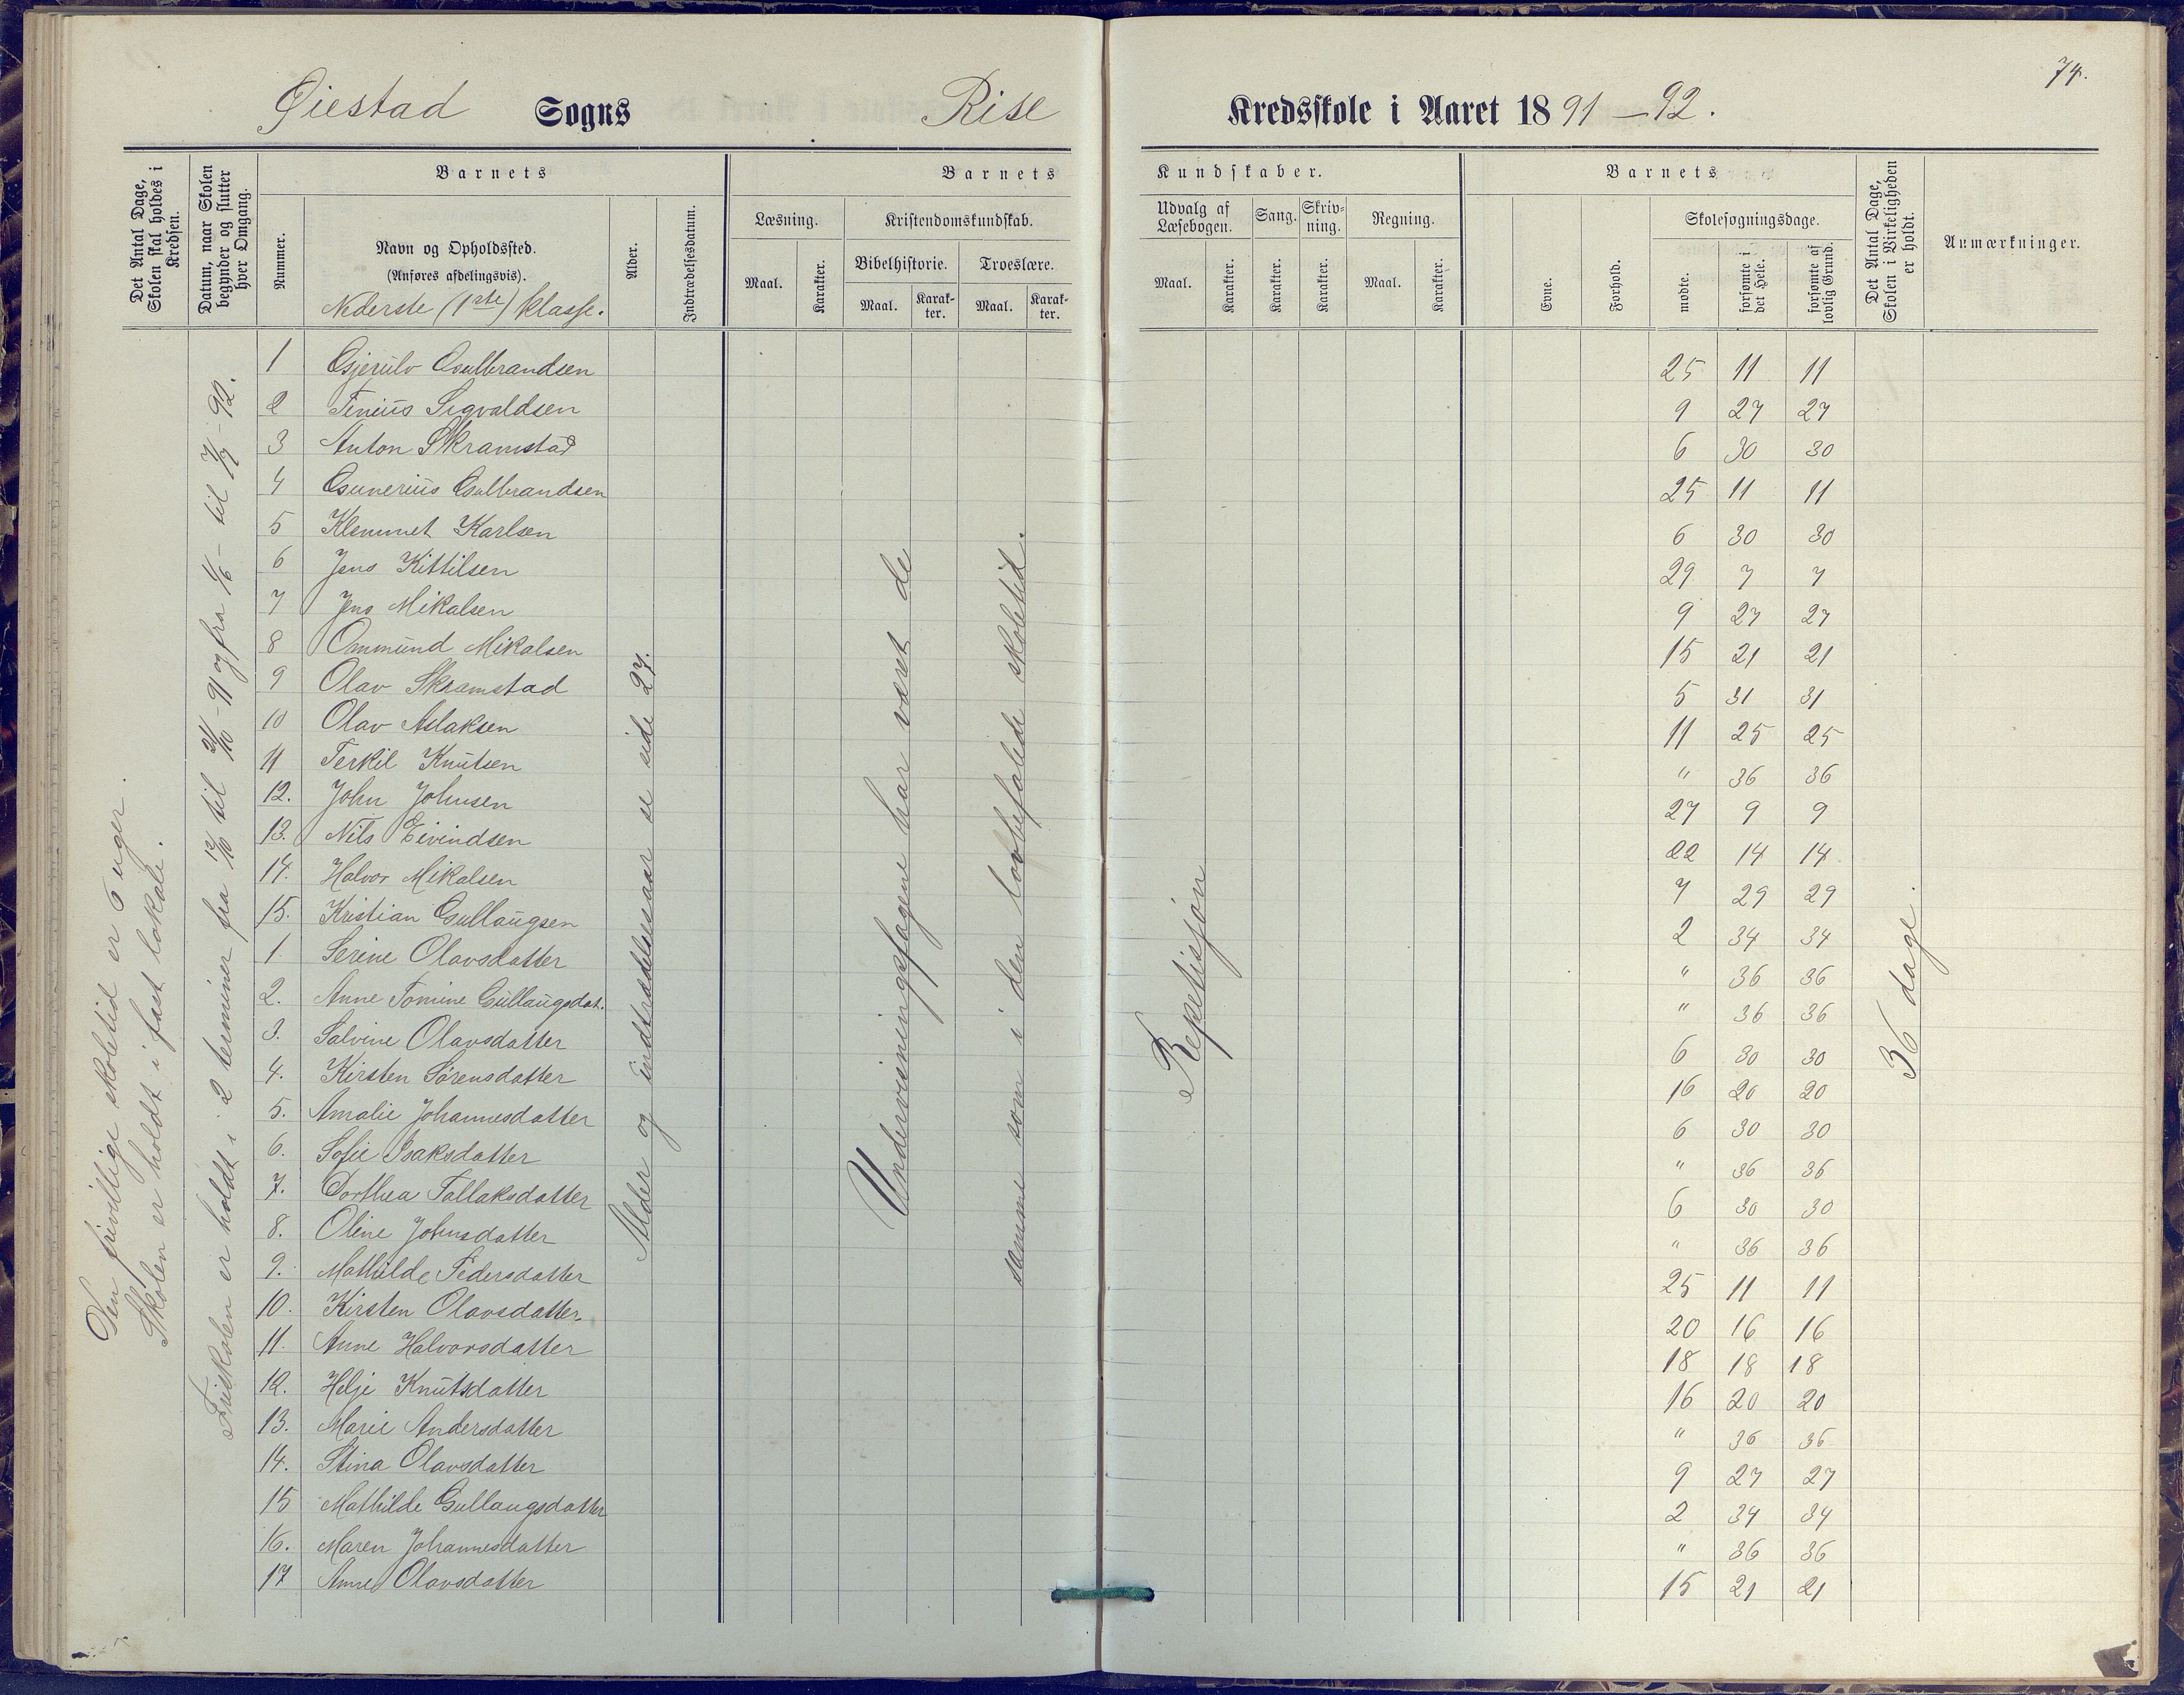 74.
Øiestad Sogns Rise Kredsskole i Aaret 1891-92.
Det Antal Dage, Skolen skal holdes i Kredsen.
Datum, naar Skolen begynder og slutter hver Omgang.
Barnets
Nummer.
Navn og Opholdssted.
(Anføres afdelingsvis).
Nederste (1ste) klasse.
Alder.
Indtrædelsesdatum.
Barnets Kundskaber.
Læsning.
Maal. Karakter.
Kristendomskundskab.
Bibelhistorie. Troeslære.
Maal. Karakter. Maal. Karakter.
Udvalg af Læsebogen.
Maal. Karakter.
Sang.
Karakter.
Skrivning.
Karakter.
Regning.
Maal. Karakter.
Barnets
Evne.
Forhold.
Skolesøgningsdage.
mødte.
forsømte i det Hele.
forsømte af lovlig Grund.
Det Antal Dage, Skolen i Virkeligheden er holdt.
Anmærkninger.
Den frivillige skoletid er 6 uger.
Skolen er holdt i fast lokale.
Friskolen er holdt i 2 terminer fra 12/10 til 31/10-91 og fra 1/6- til 7/7-92.
Alder og indtrædelsesaar se side 27.
Undervisningsfagene har været de
samme som i den lovbefalede skoletid.
Repetisjon
36 dage.
1 Gjerulv Gulbrandsen 25 11 11
2 Tinius Sigvaldsen 9 27 27
3 Anton Skramstad 6 30 30
4 Gunerius Gulbrandsen 25 11 11
5 Klemmet Karlsen 6 30 30
6 Jens Kittilsen 29 7 7
7 Jens Mikalsen 9 27 27
8 Ommund Mikalsen 15 21 21
9 Olav Skramstad 5 31 31
10 Olav Aslaksen 11 25 25
11 Terkil Knutsen " 36 36
12. John Johnsen 27 9 9
13. Nils Eivindsen 22 14 14
14. Halvor Mikalsen 7 29 29
15. Kristian Gullaugsen 2 34 34
1. Serine Olavsdatter " 36 36
2. Anne Tomine Gullaugsdat. " 36 36
3. Salvine Olavsdatter 6 30 30
4. Kirsten Sørensdatter 16 20 20
5. Amalie Johannesdatter 6 30 30
6. Sofie Isaksdatter " 36 36
7. Dorthea Tallaksdatter 6 30 30
8. Oline Johnsdatter " 36 36
9. Mathilde Pedersdatter 25 11 11
10. Kirsten Olavsdatter 20 16 16
11. Anne Halvorsdatter 18 18 18
12. Helje Knutsdatter 16 20 20
13. Marie Andersdatter " 36 36
14. Stina Olavsdatter 9 27 27
15 Mathilde Gullaugsdatter 2 34 34
16. Maren Johannesdatter " 36 36
17 Anne Olavsdatter 15 21 21